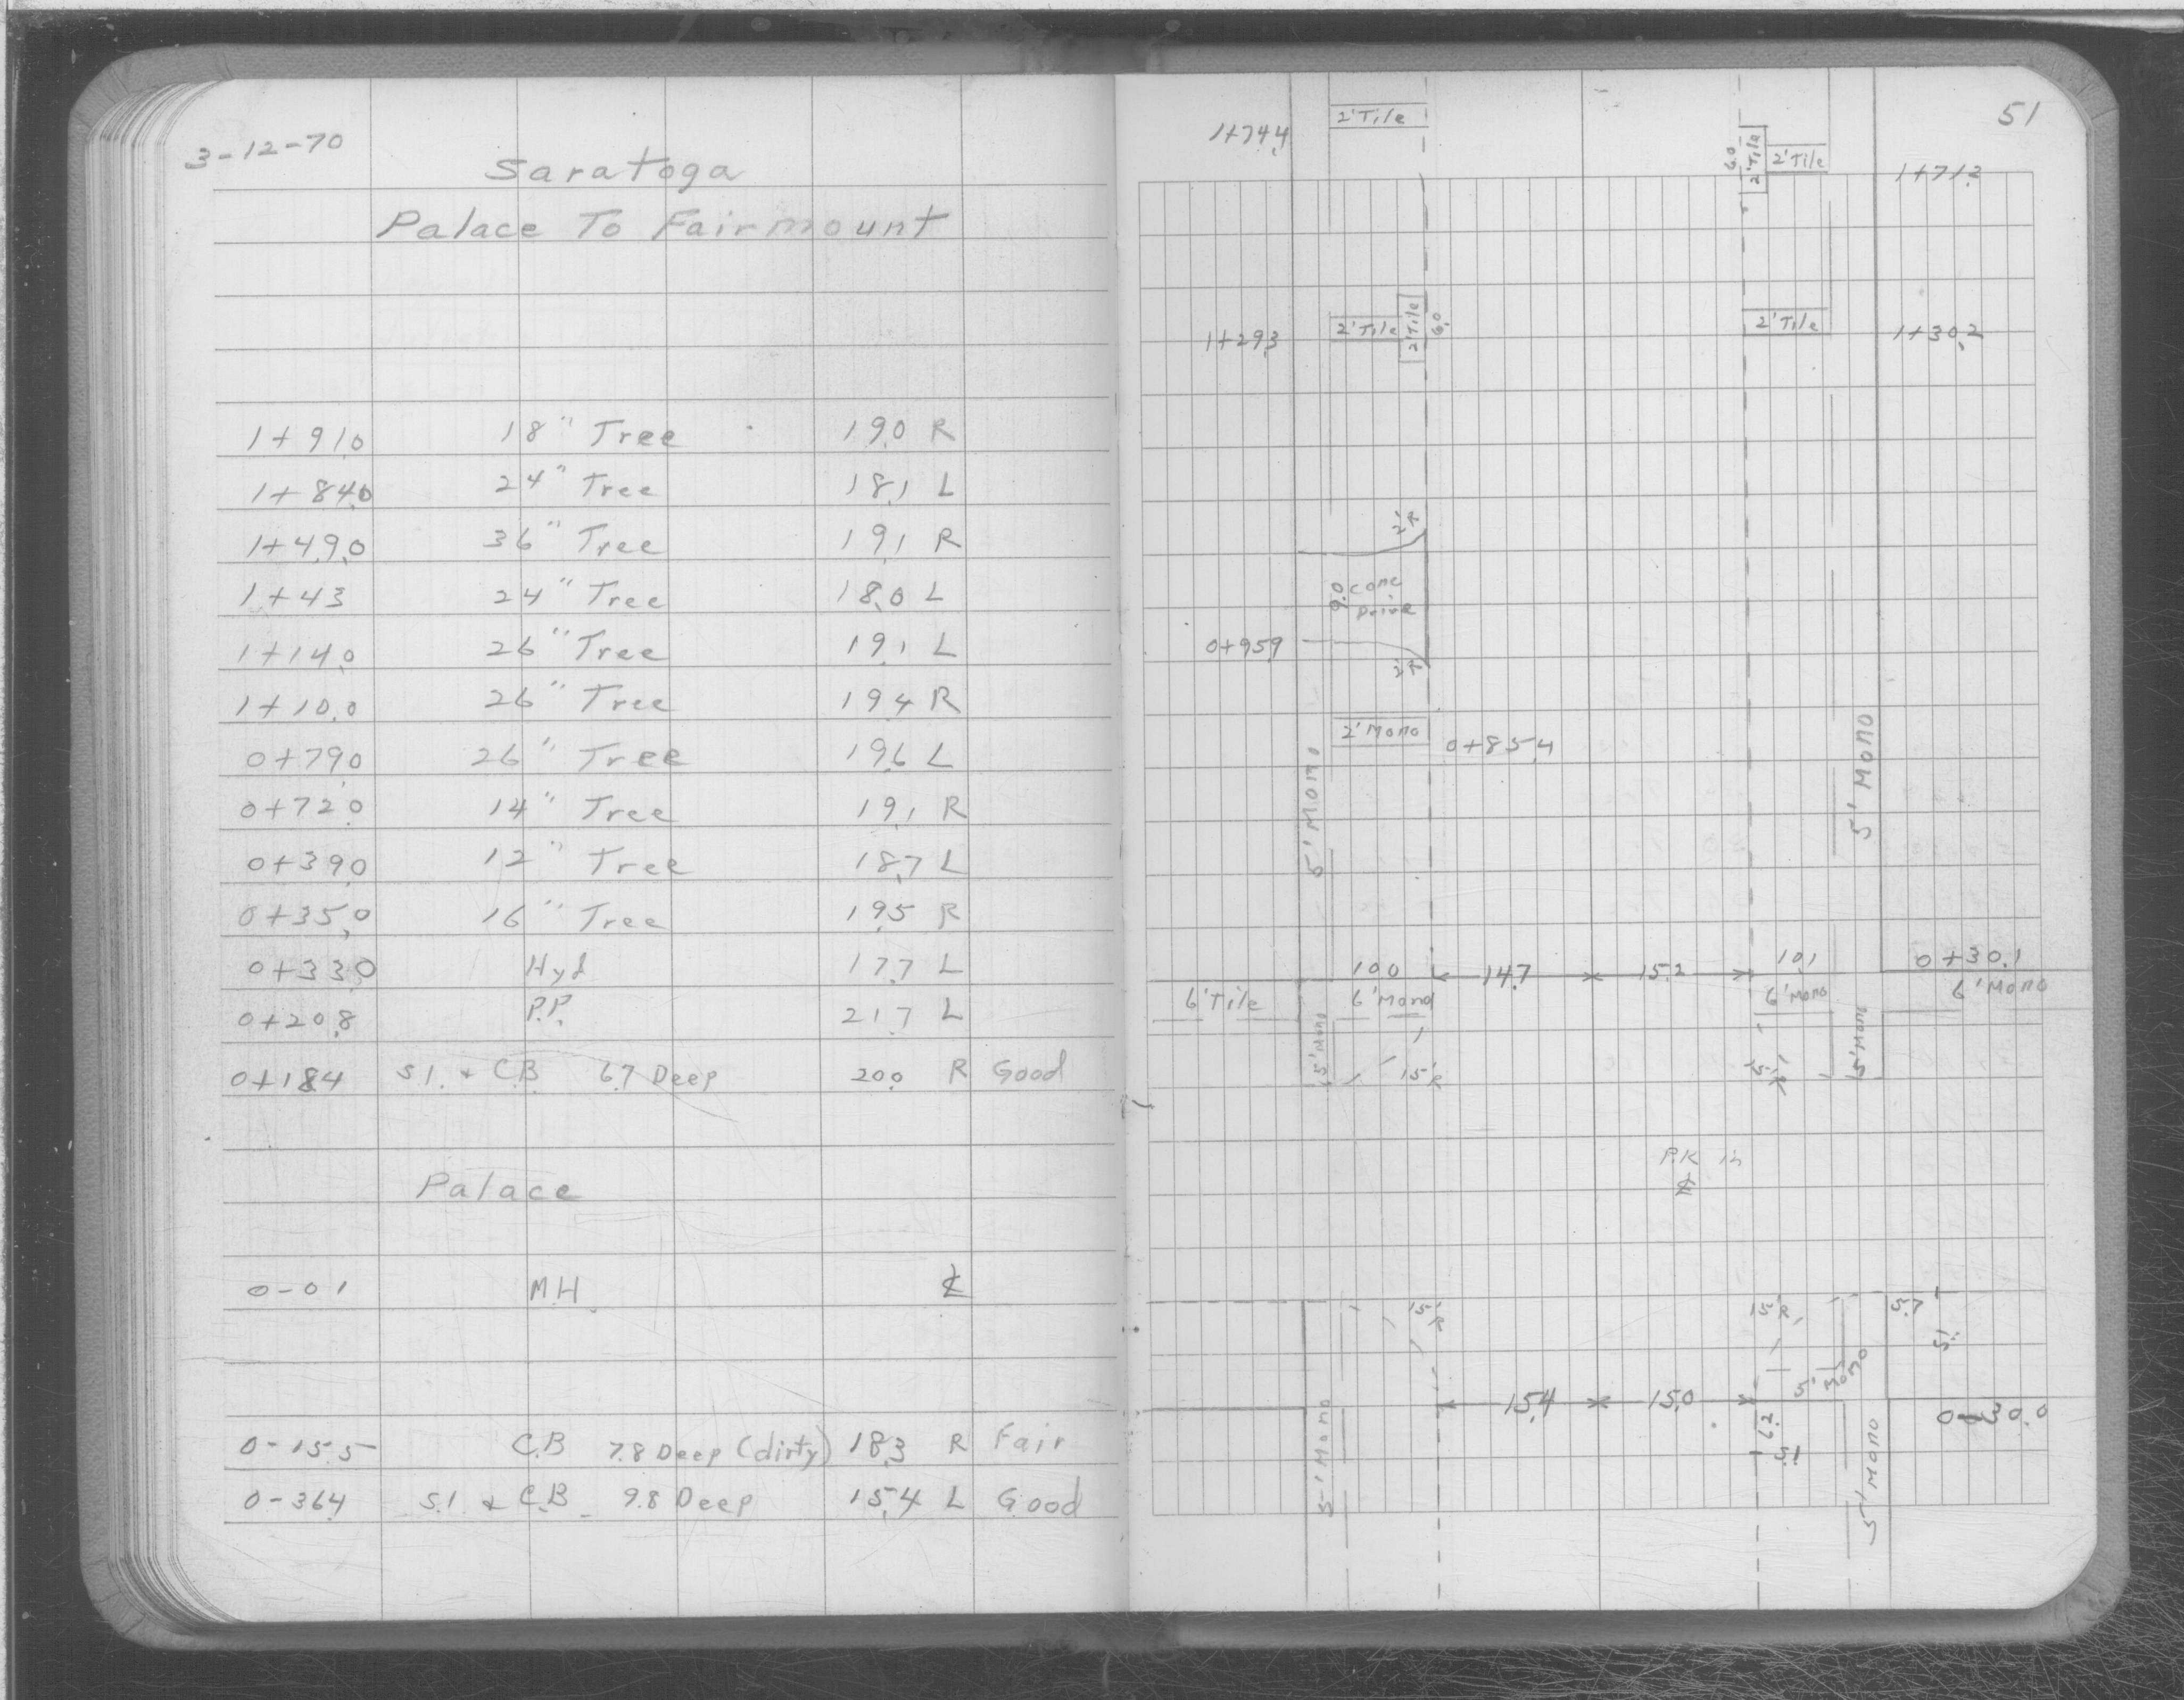 3-12-70
Saratoga
Palace To Fairmount
1+91.0 18" Tree 19.0 R
1+84.0 24" Tree 18.1 L
1+49.0 36" Tree 19.1 R
1+43 24" Tree 18.0 L
1+14.0 26" Tree 19.1 L
1+10.0 26" Tree 19.4 R
0+79.0 26" Tree 19.6 L
0+72.0 14" Tree 19.1 R
0+39.0 12" Tree 18.7 L
0+35.0 16" Tree 19.5 R
0+33.0 Hyd 17.7 L
0+20.8 P.P. 21.7 L
0+18.4 S.I. + C.B. 6.7 Deep 20.0 R Good
Palace
0-0.1 M.H. ℄
0-15.5 C.B 7.8 Deep (dirty) 18.3 R Fair
0-36.4 S.I. + C.B 9.8 Deep 15.4 L Good
51
1+74.4 2' Tile
6.0 2' Tile 2' Tile 1+71.2
1+29.3 2' Tile 2' Tile 6.0 2' Tile 1+30.2
2'R
9.0 conc
Drive
0+95.9
2'R
2' Mono 0+85.4
5' Mono 5' Mono
10.0 14.7 15.2 10.1 0+30.1
6' Tile 6' Mono 6' Mono 6' Mono
5' Mono 15'R 15'R 5' Mono
P.K. in
℄
15'R 15'R 5.7
5.1
5' Mono
15.4 15.0 0-30.0
5' Mono 6.2 5.1 5' Mono